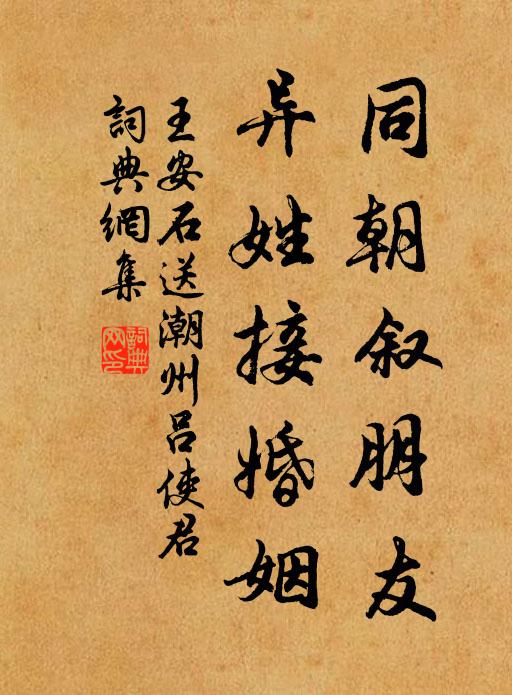 同朝叙朋友
异姓接婚姻
王安石送潮州吕使君
詞典網集
詞典网印